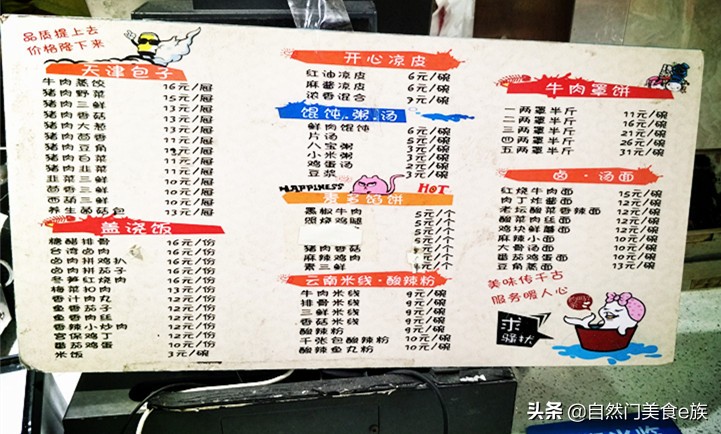 品质提上去
价格降下来
天津包子
牛肉蒸饺 16元/屉
猪肉野菜 15元/屉
猪肉三鲜 13元/屉
猪肉香菇 13元/屉
猪肉大葱 13元/屉
猪肉茴香 11元/屉
猪肉豆角 11元/屉
猪肉白菜 11元/屉
猪肉韭菜 11元/屉
韭菜三鲜 10元/屉
茴香三鲜 10元/屉
西葫三鲜 10元/屉
养生菌菇包 13元/屉
盖浇饭
糖醋排骨 16元/份
台湾卤肉 16元/份
卤肉拼鸡扒 16元/份
卤肉拼茄子 16元/份
冬笋红烧肉 16元/份
榨菜扣肉 16元/份
香汁肉丸 12元/份
鱼香茄子 12元/份
鱼香肉丝 12元/份
香辣小炒肉 12元/份
宫保鸡丁 12元/份
番茄鸡蛋 10元/份
米饭 3元/碗
开心凉皮
红油凉皮 6元/碗
麻酱凉皮 6元/碗
浓香混合 7元/碗
馄饨.粥.汤
鲜肉馄饨 6元/碗
片汤 5元/碗
八宝粥 3元/碗
小米粥 3元/碗
鸡蛋汤 2元/碗
豆浆 3元/碗
HAPPINESS HOT
麦多馅饼
黑椒牛肉 5元/个
照烧鸡腿 5元/个
猪肉香菇
麻辣鸡肉
素三鲜
云南米线·酸辣粉
牛肉米线 9元/碗
排骨米线 9元/碗
三鲜米线 9元/碗
香菇米线 9元/碗
酸辣粉 9元/碗
千张包酸辣粉 10元/碗
酸辣鱼丸粉 10元/碗
牛肉罩饼
一两罩半斤 11元/碗
二两罩半斤 16元/碗
三两罩半斤 21元/碗
四两罩半斤 26元/碗
五两罩半斤 31元/碗
卤·汤面
红烧牛肉面 15元/碗
肉丁炸酱面 12元/碗
老坛酸菜香辣面 12元/碗
酸菜肉丝面 12元/碗
鸡块鲜蘑面 12元/碗
麻辣小面 10元/碗
大骨汤面 10元/碗
番茄鸡蛋面 10元/碗
豆角蒸面 13元/碗
美味传千古
服务暖人心
求骚扰
头条 @自然门美食e族